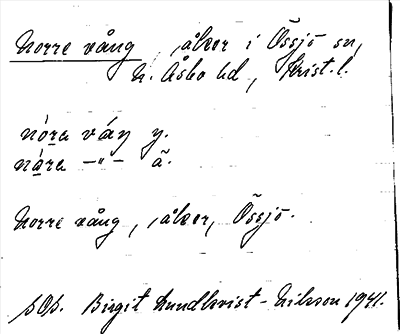 Norre vång, åker i Össjö sn,
N. Åsbo hd, Krist. l.
nòra váŋ y.
nàra –"– ä.
Norre vång, åker, Össjö.
pOp. Birgit Lundkvist-Nilsson 1941.